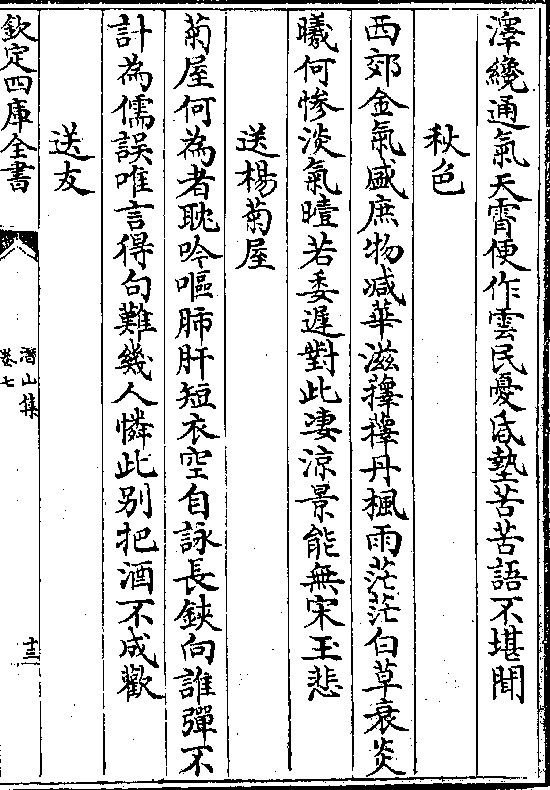 澤纔通氣天霄便作雲民憂昏墊苦苦語不堪聞
秋色
西郊金氣盛庶物减華滋籜籜丹楓雨茫茫白草衰炎
曦何惨淡氣曀若委遲對此凄涼景能無宋玉悲
送楊菊屋
菊屋何為者耽吟嘔肺肝短衣空自詠長鋏向誰彈不
計為儒誤唯言得句難幾人憐此别把酒不成歡
送友
欽定四庫全書
潛山集
卷七
十三